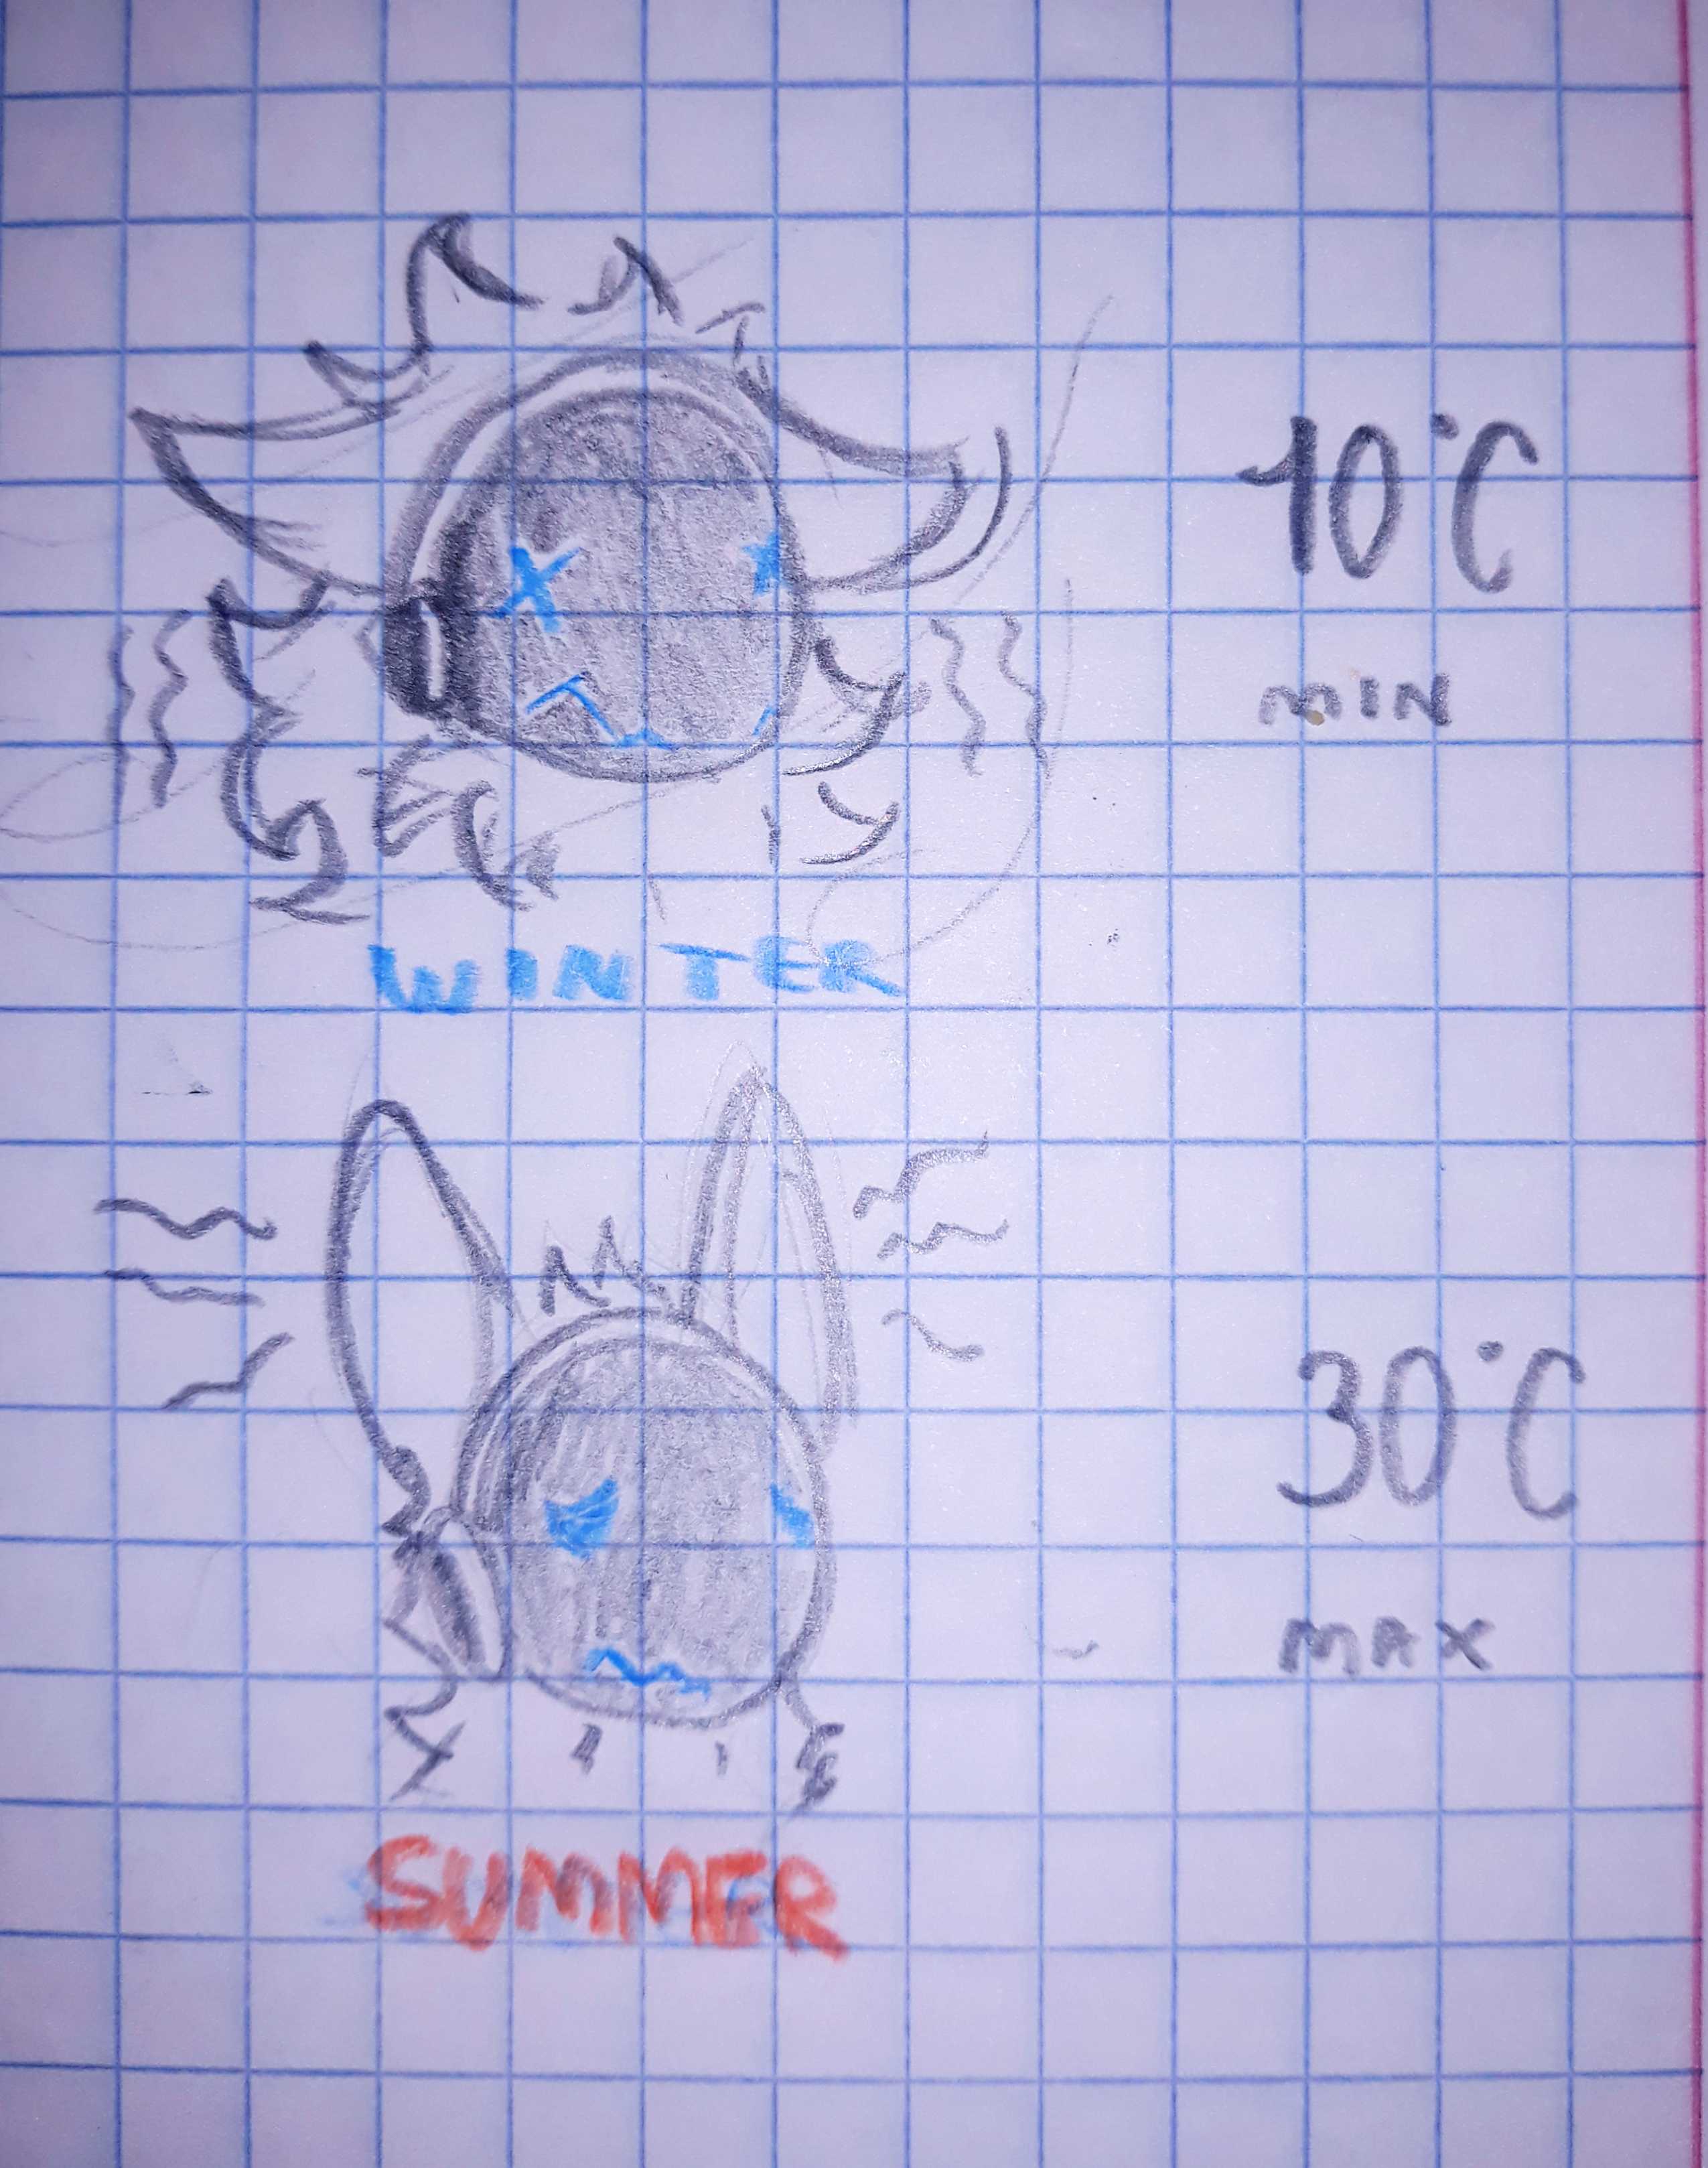 10°C
MIN
WINTER
30°C
MAX
SUMMER